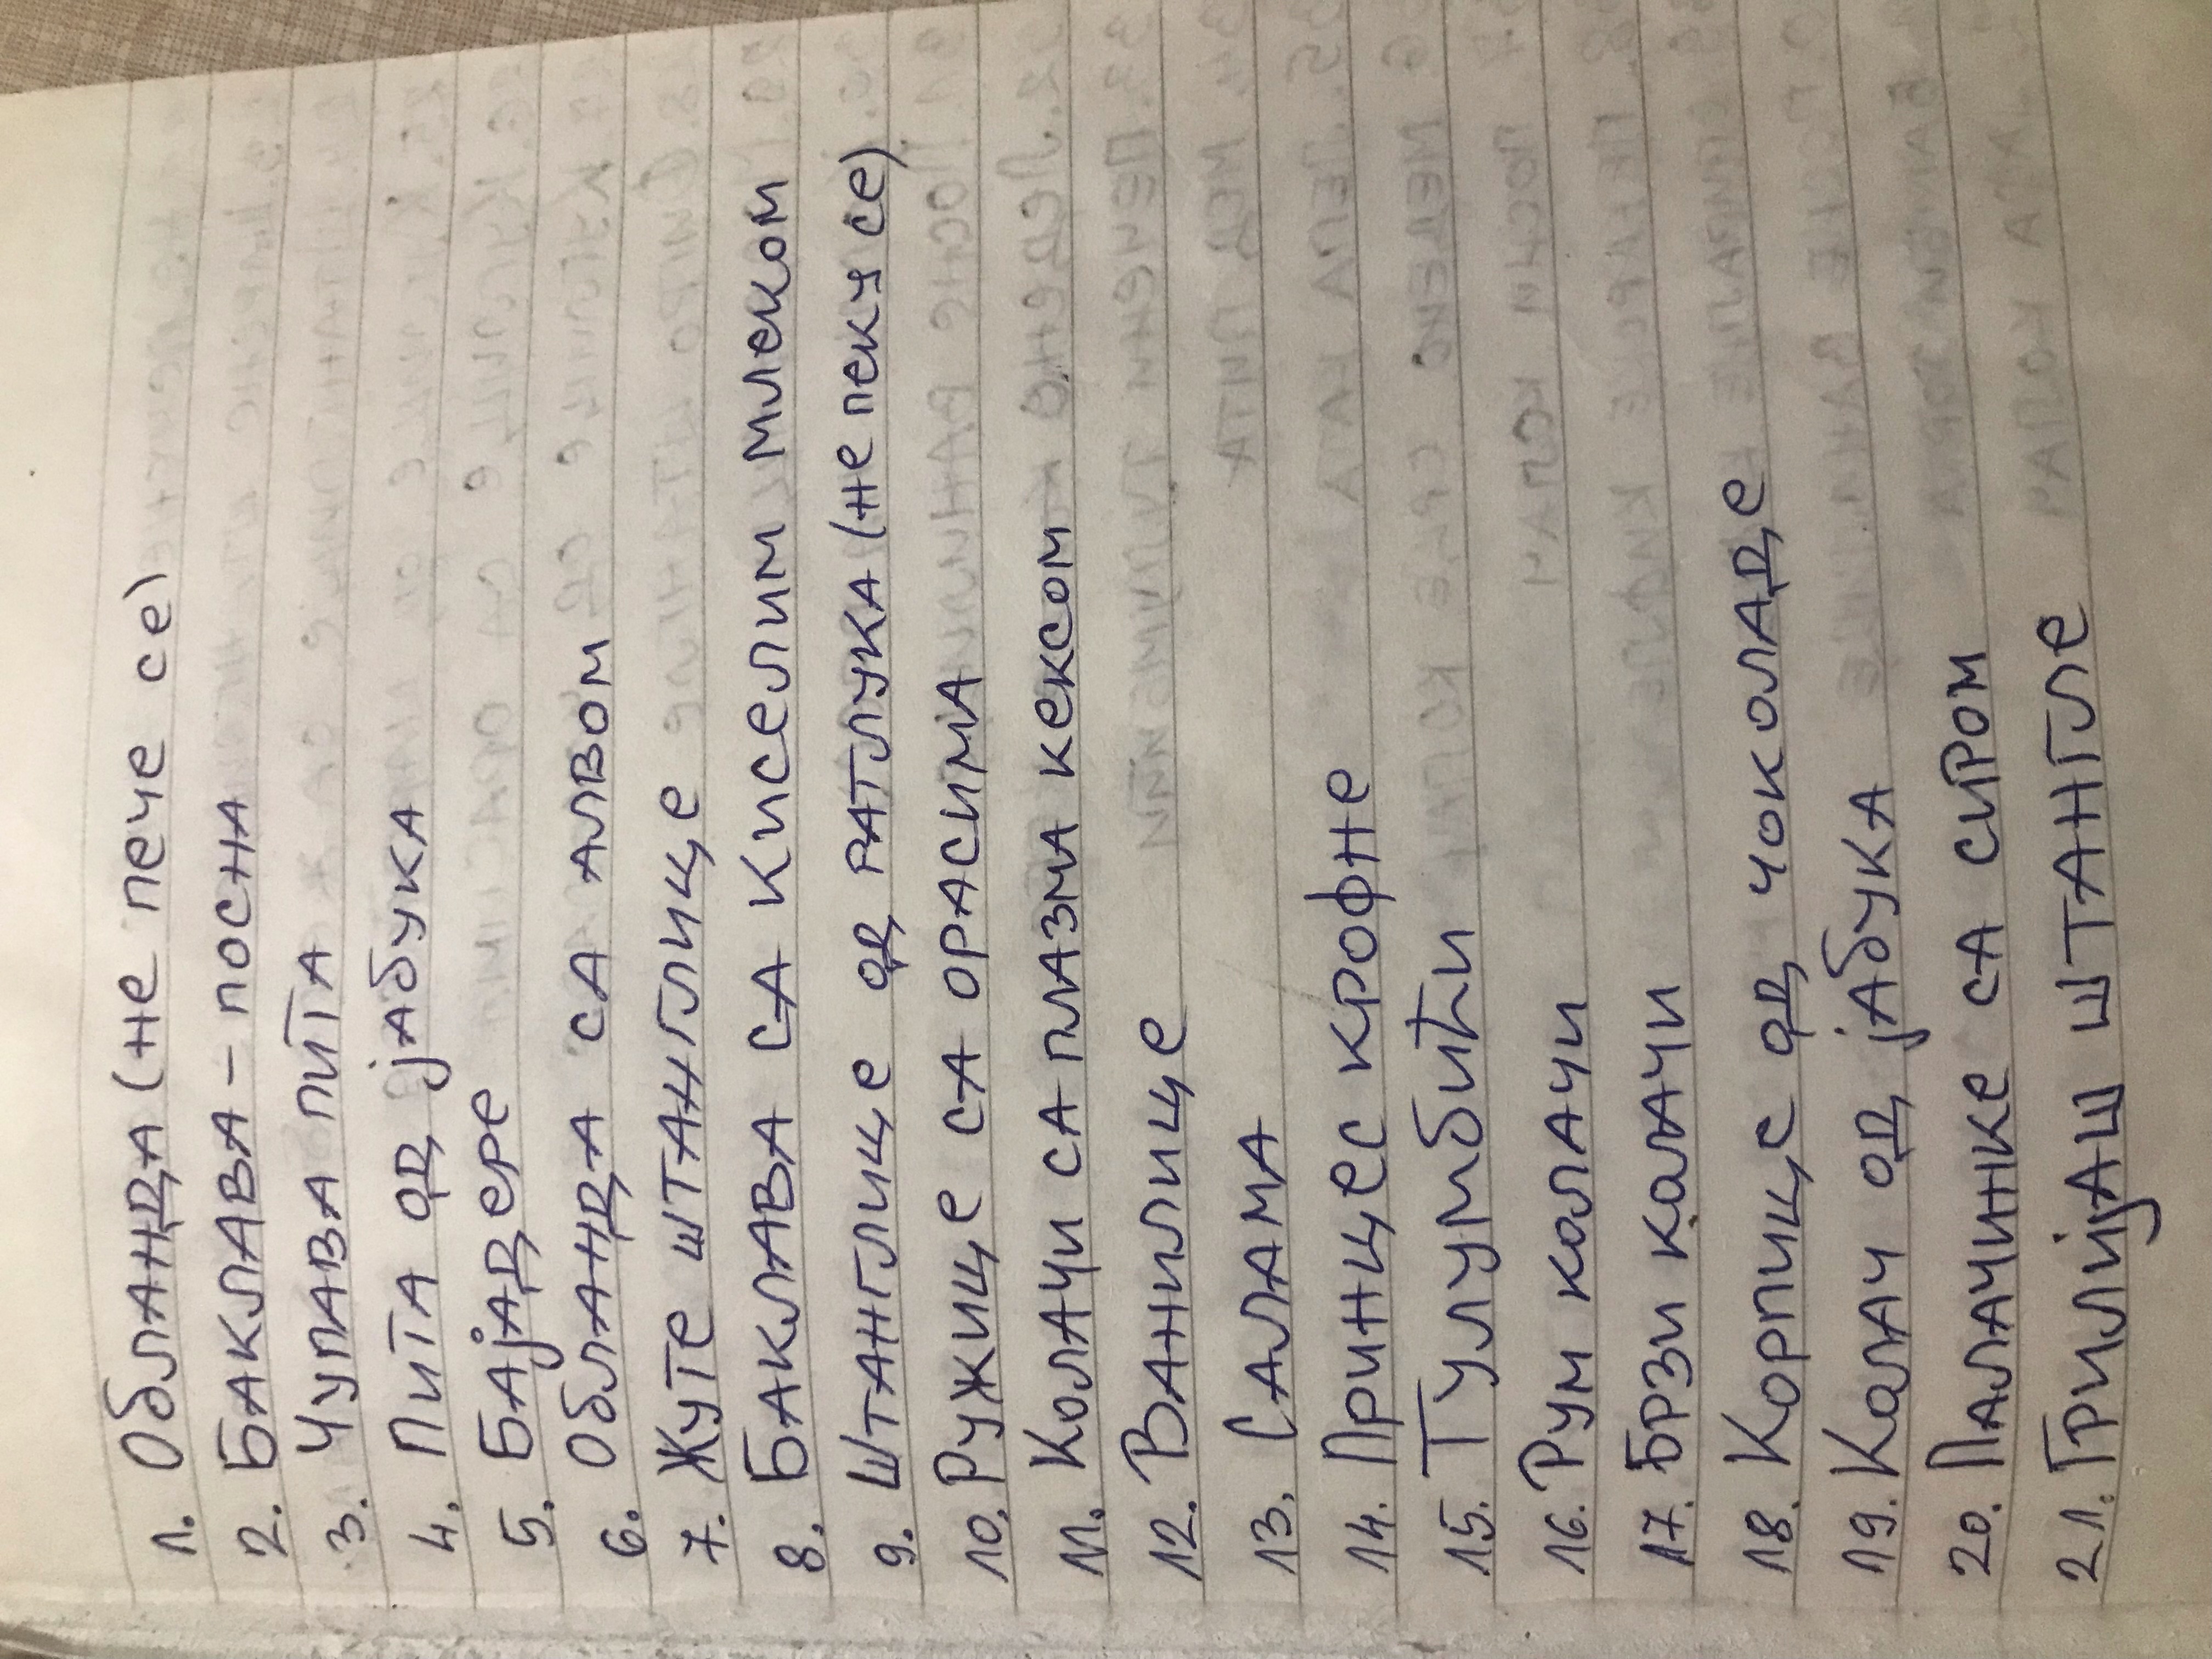 1. Обланда (не пече се)
2. Баклава - посна
3. Чупава пита
4. Пита од јабука
5. Бајадере
6. Обланда са алвом
7. Жуте штанглице
8. Баклава са киселим млеком
9. Штанглице од ратлука (не пеку се)
10. Ружице са орасима
11. Колачи са плазма кексом
12. Ванилице
13. Салама
14. Принцес крофне
15. Тулумбићи
16. Рум колачи
17. Брзи колачи
18. Корпице од чоколаде
19. Колач од јабука
20. Палачинке са сиром
21. Грилијаш штангле